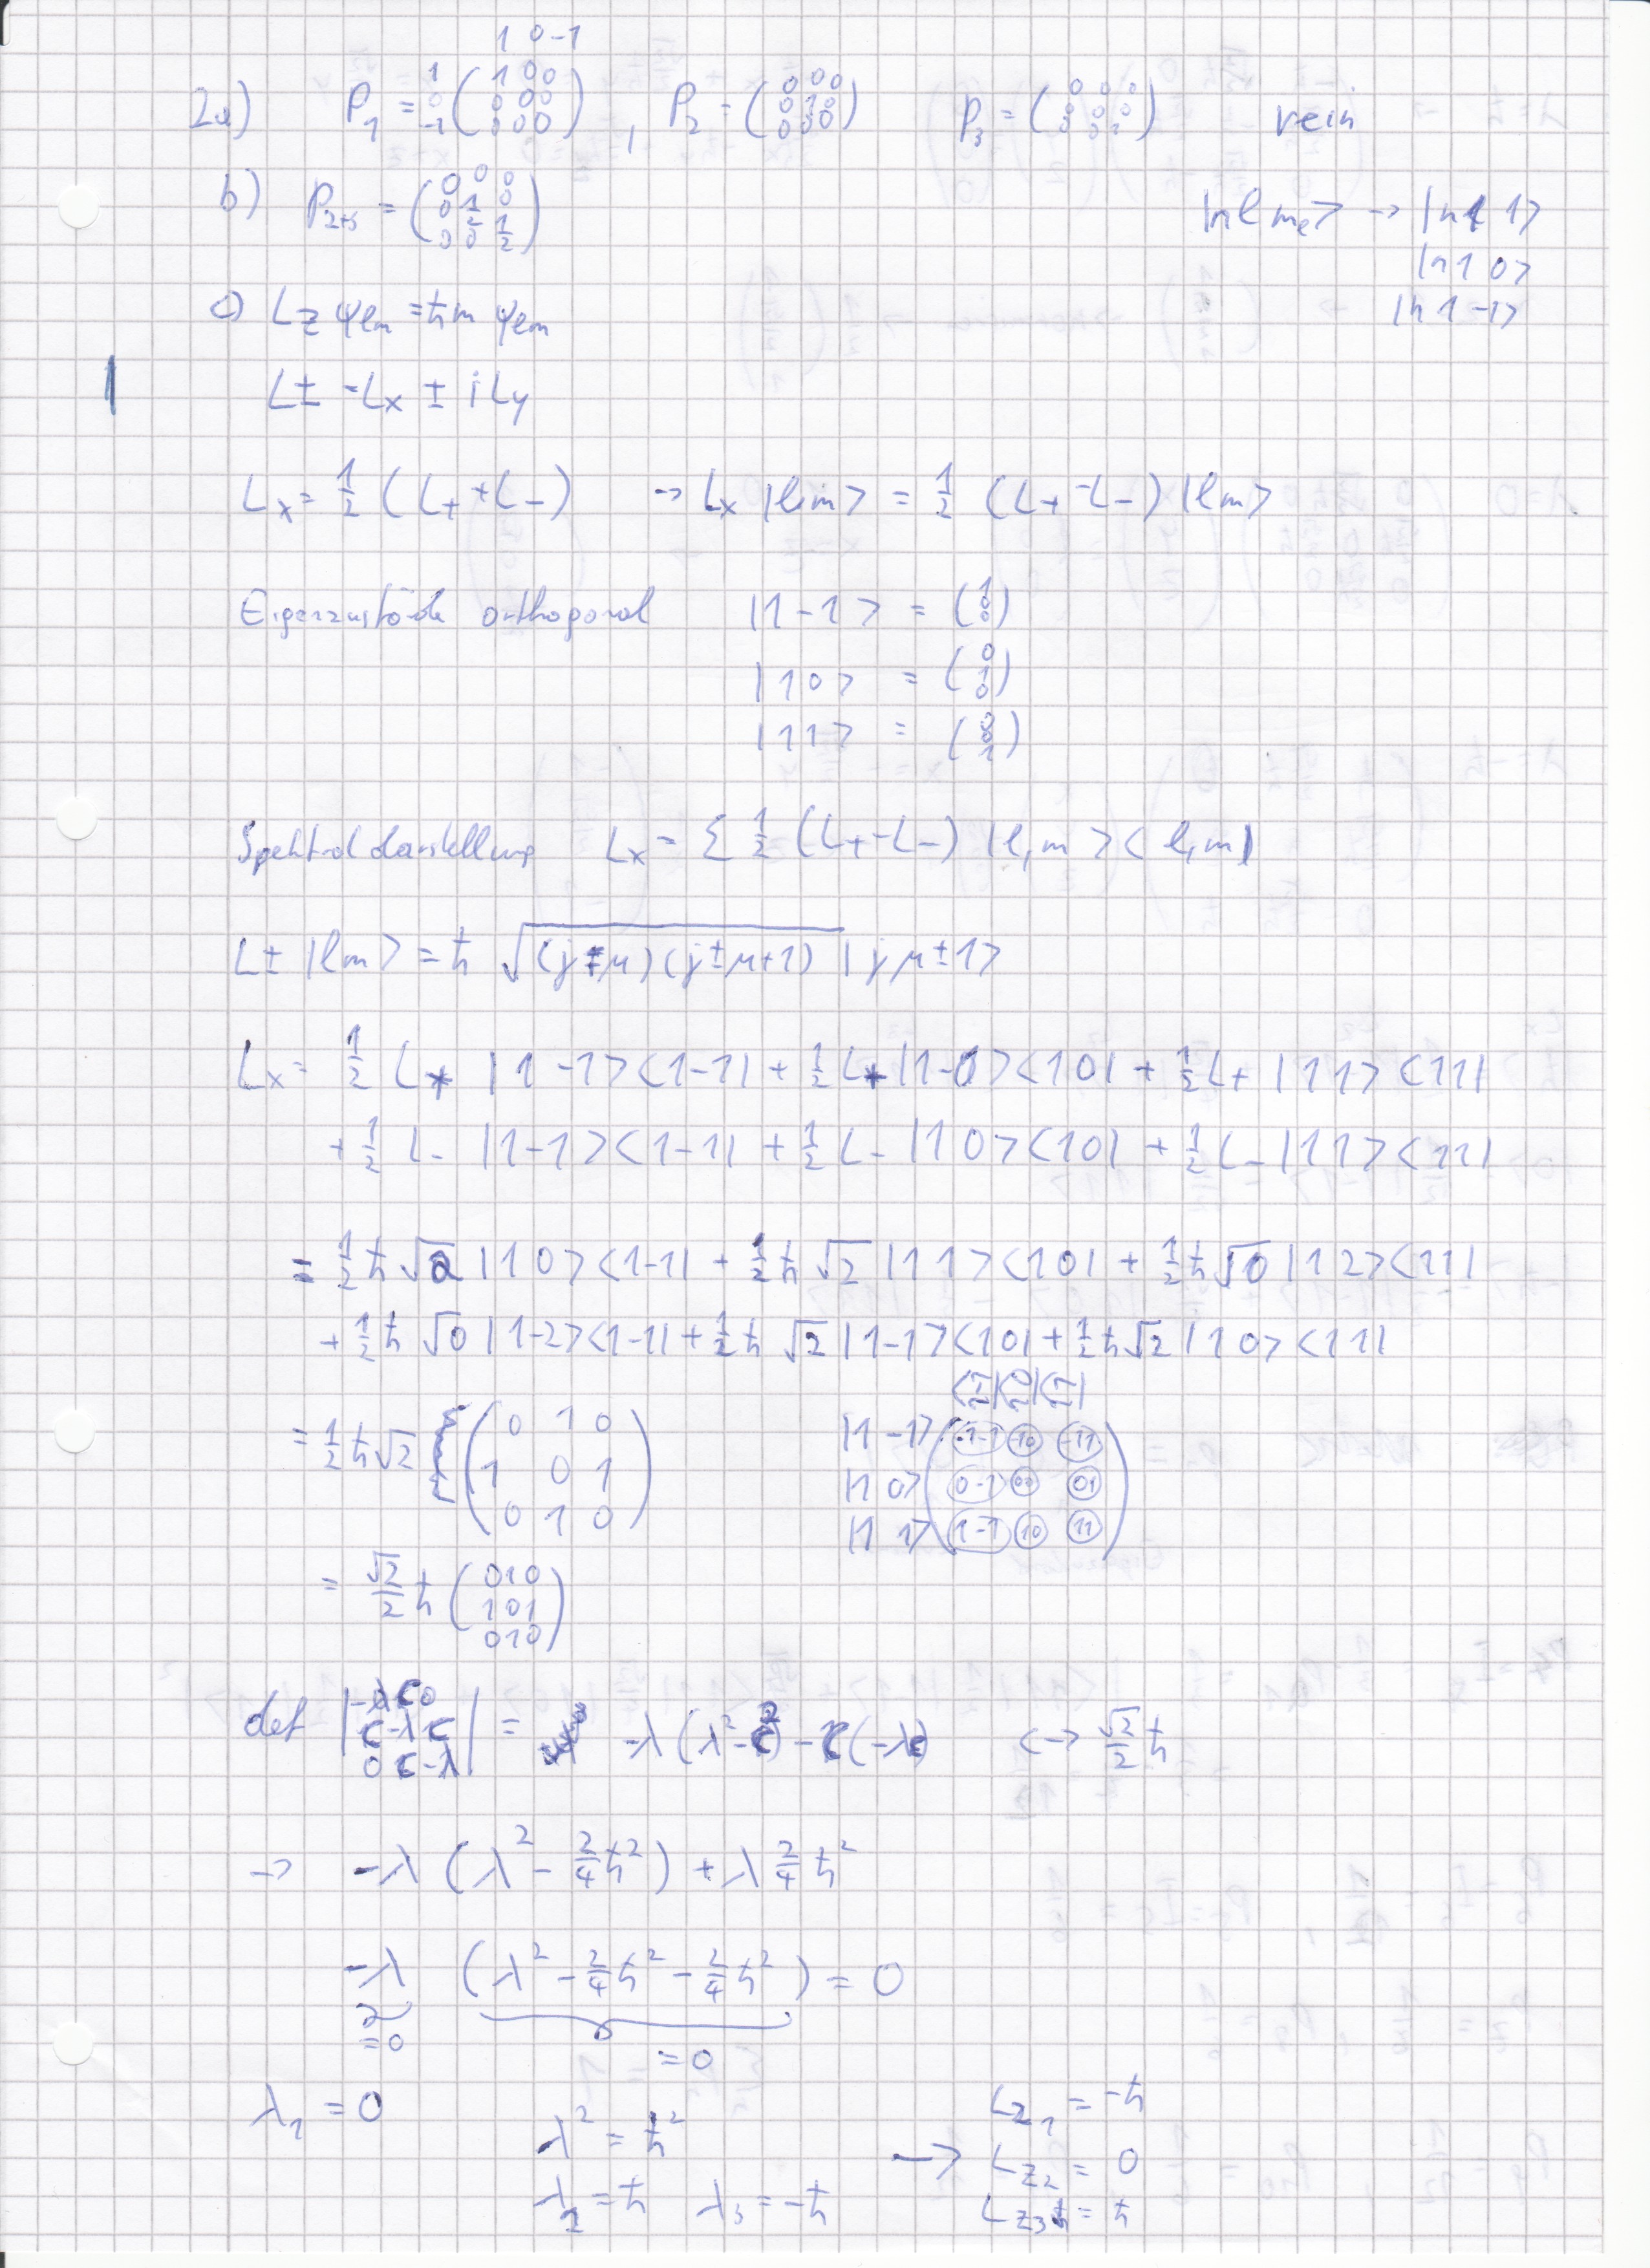 1 0 -1
2a) P₁ = 1 0 -1 (1 0 0 / 0 0 0 / 0 0 0) , P₂ = (0 0 0 / 0 1 0 / 0 0 0) P₃ = (0 0 0 / 0 0 0 / 0 0 1) rein
b) P₂₊₃ = (0 0 0 / 0 1/2 0 / 0 0 1/2) |n l mₑ> → |n 1 1>
|n 1 0>
c) L_z φ_lm = ħm φ_lm |n 1 -1>
1
L± = L_x ± i L_y
L_x = 1/2 (L₊ + L₋) → L_x |l,m> = 1/2 (L₊ + L₋) |lm>
Eigenzustände orthogonal |1 -1> = (1 0 0)
|1 0> = (0 1 0)
|1 1> = (0 0 1)
Spektraldarstellung L_x = Σ 1/2 (L₊ + L₋) |l,m><l,m|
L± |lm> = ħ √((j∓μ)(j±μ+1)) |j μ±1>
L_x = 1/2 L₊ |1 -1><1 -1| + 1/2 L₊ |1 0><1 0| + 1/2 L₊ |1 1><1 1|
+ 1/2 L₋ |1 -1><1 -1| + 1/2 L₋ |1 0><1 0| + 1/2 L₋ |1 1><1 1|
= 1/2 ħ √2 |1 0><1 -1| + 1/2 ħ √2 |1 1><1 0| + 1/2 ħ √0 |1 2><1 1|
+ 1/2 ħ √0 |1 -2><1 -1| + 1/2 ħ √2 |1 -1><1 0| + 1/2 ħ √2 |1 0><1 1|
= 1/2 ħ √2 (0 1 0 / 1 0 1 / 0 1 0) |1 -1> |1 0> |1 1> (-1-1 -10 -11 / 0-1 00 01 / 1-1 10 11)
= √2/2 ħ (0 1 0 / 1 0 1 / 0 1 0)
det |-λ c 0 / c -λ c / 0 c -λ| = -λ (λ² - c²) - c (-λc) c → √2/2 ħ
→ -λ (λ² - 2/4 ħ²) + λ 2/4 ħ²
-λ (λ² - 2/4 ħ² - 2/4 ħ²) = 0
=0 =0
λ₁ = 0 λ² = ħ² → L_z1 = -ħ
L_z2 = 0
λ₂ = ħ λ₃ = -ħ L_z3 = ħ